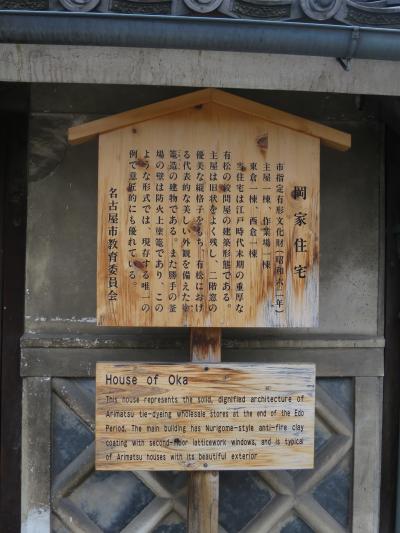 岡家住宅
市指定有形文化財(昭和六二年)
主屋一棟、作業場一棟
東倉一棟、西倉一棟
当住宅は江戸時代末期の重厚な
有松の絞問屋の建築形態である。
主屋は旧状をよく残し、二階窓の
優美な縦格子をもち、有松におけ
る代表的な美しい外観を備えた塗
篭造の建物である。また勝手の釜
場の壁は防火上塗篭であり、この
ような形式では、現存する唯一の
例で意匠的にも優れている。
名古屋市教育委員会
House of Oka
This house represents the solid, dignified architecture of
Arimatsu tie-dyeing wholesale stores at the end of the Edo
Period. The main building has Nurigome-style anti-fire clay
coating with second-floor latticework windows, and is typical
of Arimatsu houses with its beautiful exterior